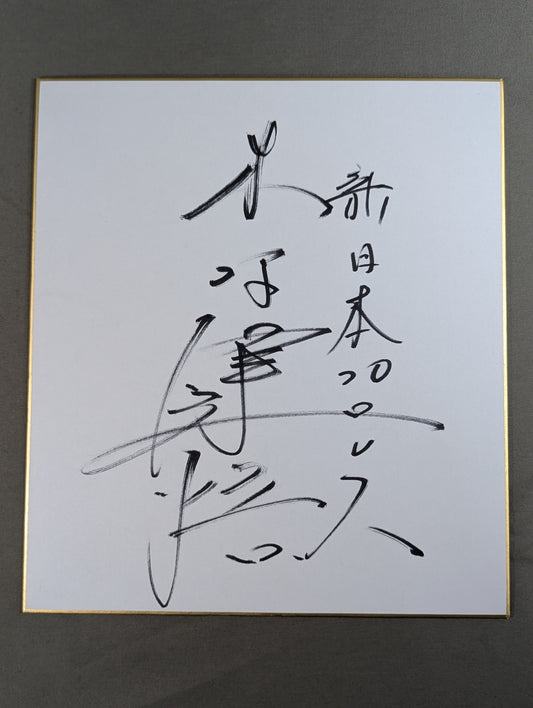 新日本プロレス
木村健悟